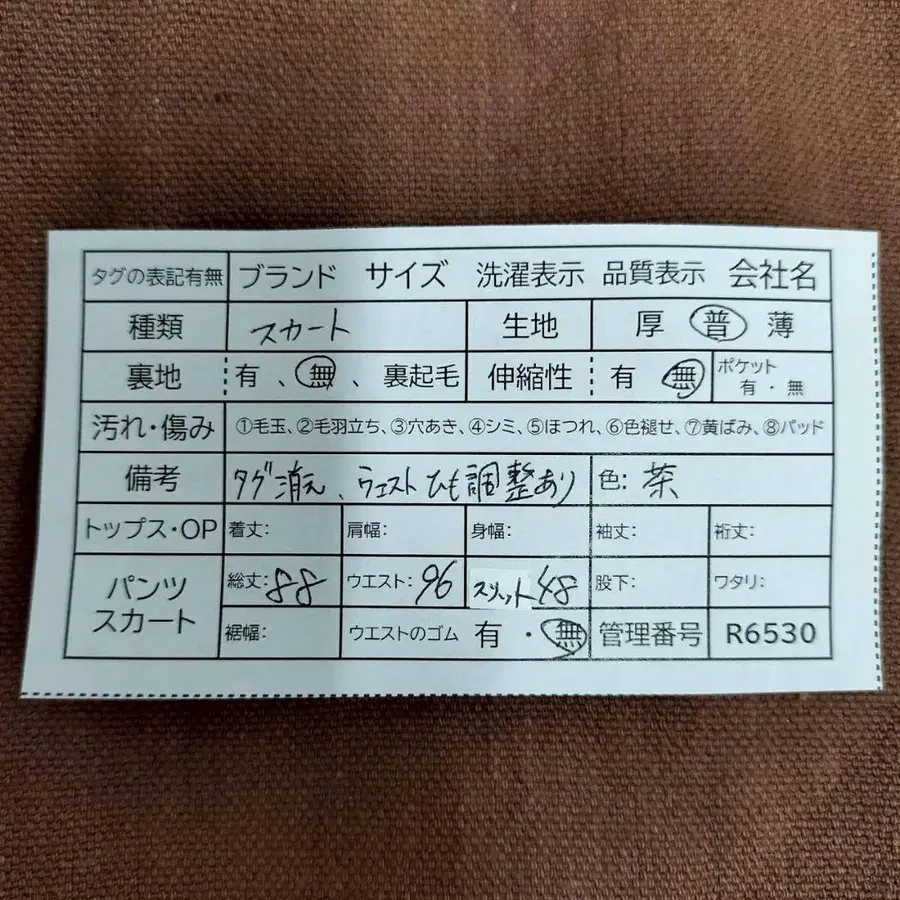 タグの表記有無 ブランド サイズ 洗濯表示 品質表示 会社名
種類 スカート 生地 厚 普 薄
裏地 有、無、裏起毛 伸縮性 有 無 ポケット 有・無
汚れ・傷み ①毛玉、②毛羽立ち、③穴あき、④シミ、⑤ほつれ、⑥色褪せ、⑦黄ばみ、⑧パッド
備考 タグ消え、ウエストひも調整あり 色: 茶
トップス・OP 着丈: 肩幅: 身幅: 袖丈: 裄丈:
パンツ スカート 総丈: 88 ウエスト: 96 スリット 48 股下: ワタリ:
裾幅: ウエストのゴム 有・無 管理番号 R6530